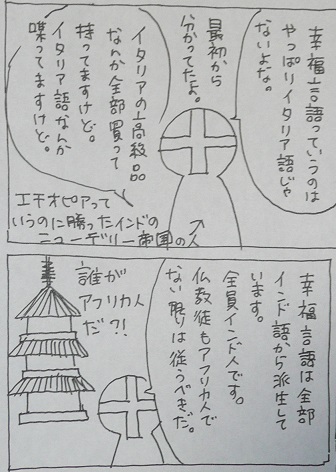 幸福言語っていうのは
やっぱりイタリア語じゃ
ないよな。
最初から
分かってたよ。
イタリアの高級品
なんか全部買って
持ってますけど。
イタリア語なんか
喋ってますけど。
エチオピアって
いうのに勝ったインドの
ニューデリー帝国の人
幸福言語は全部
インド語から派生して
います。
全員インド人です。
仏教徒もアフリカ人で
ない限りは従うべきだ。
誰が
アフリカ人
だ?!